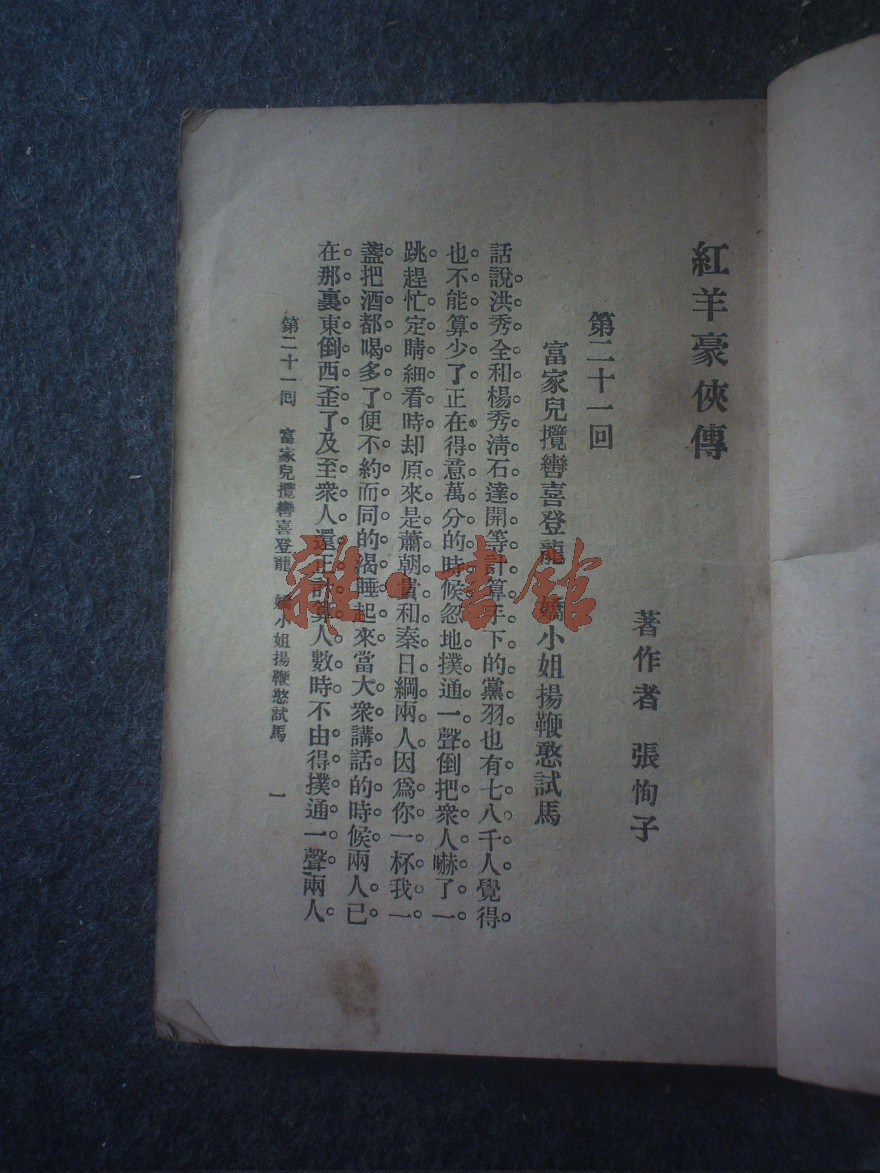 紅羊豪俠傳
著作者 張恂子
第二十一回
富家兒攬轡喜登龍 嬌小姐揚鞭憨試馬
話說洪秀全和楊秀淸石達開等計算手下的黨羽也有七八千人覺得
也不能算少了正在得意萬分的時候忽地撲通一聲倒把衆人嚇了一
跳趕忙定睛細看時却原來是蕭朝貴和秦日綱兩人因爲你一杯我一
盞把酒都喝多了便不約而同的渴睡起來當大衆講話的時候兩人已
在那裏東倒西歪了及至衆人還正計算人數時不由得撲通一聲兩人
第二十一回 富家兒攬轡喜登龍 嬌小姐揚鞭憨試馬 一
雜·書館